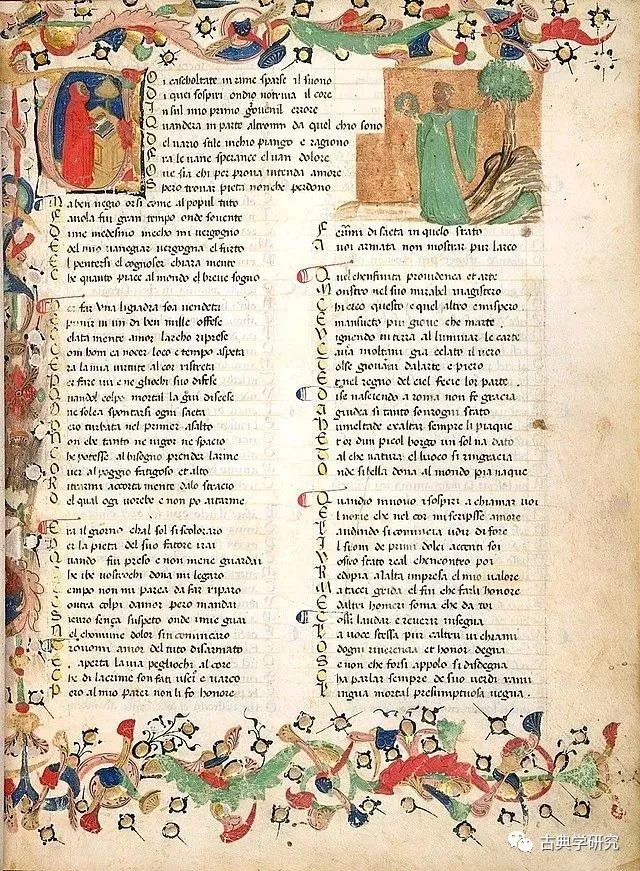 Voi cascholtate in rime sparse il suono
Di quei sospiri ondio notriva il core
In sul mio primo giovenil errore
Quandera in parte altromo da quel chio sono
Del vario stile inchio piango e ragiono
Fra le vane sperance el van dolore
Ove sia chi per prova intenda amore
Spero trovar pieta nonche perdono
Ma ben vegio orsi come al popul tuto
Favola fui gran tempo onde sovente
Di me medesimo mecho mi vergogno
E del mio vanegiar vergogna el fruto
El pentersi el cognoscer chiara mente
Che quanto piace al mondo el breve sogno
Per far una ligiadra soa vendeta
E punir in un di ben mille offese
Celata mente amor larcho riprese
Com hom ca nocer loco e tempo aspeta
Era la mia virtute al cor ristreta
Per fare ivi e ne gliochi sue difese
Quandel colpo mortal la giu discese
Ove solea spontarsi ogni saeta
Pero turbata nel primer asalto
Non ebe tanto ne vigor ne spacio
Che potesse al bisogno prender larme
Over al poggio fatigoso et alto
Ritrarmi accorta mente dalo stracio
Del qual ogi vorebe e non po aitarme
Era il giorno chal sol si scoloraro
Per la pieta del suo fatore i rai
Quando fui preso e non mene guardai
Che ibe vostrochi dona mi legaro
Tempo non mi parea da far riparo
Contra colpi damor pero mandai
Securo senza suspeto onde imie guai
Nel chomune dolor sin comincaro
Trovomi amor del tuto disarmato
Et aperta la via pegliochi al core
Che di lacrime son fati usci e varco
Pero al mio parer non li fo honore
Ferirmi de saeta in quelo stato
A voi armata non mostrar pur larco
Quel chenfinita providenca et arte
Mostro nel suo mirabel magistero
Chi creo questo e quel altro emispero
E mansueto piu giove che marte
Vegnendo in terra al luminar le carte
Cavea moltani gia celato il vero
Tolse giovani dalarte e piero
E nel regno del ciel fece lor parte
Di se nascendo a roma non fe gracia
A giudea si tanto sovrogni stato
Humeltade exaltar sempre li piaque
Et or dun picol borgo un sol na dato
Tal che natura el luoco si ringracia
Onde si bella dona al mondo piu naque
Quandio movo i sospiri a chiamar voi
El nome che nel cor mi scripsse amore
Laudando si comincia udir di fore
Il suon de primi dolci accenti soi
Vostro stato real chencontro poi
Redopia alalta impresa el mio valore
Ma tacci grida el fin che farli honore
E daltri homeri soma che da toi
Cossi laudar e reverir insegna
La voce stessa pur caltrui vi chiami
O dogni riverencia et honor degna
Se non che forsi appolo si disdegna
Cha parlar sempre de suo verdi rami
Lingua mortal presumptuosa vegna
古典学研究